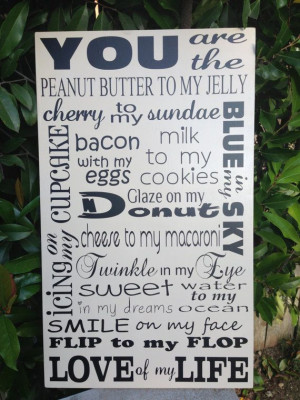 YOU are the
PEANUT BUTTER TO MY JELLY
cherry to my sundae
BLUE in my SKY
icing on my CUPCAKE
bacon with my eggs
milk to my cookies
Glaze on my Donut
cheese to my macaroni
Twinkle in my Eye
sweet in my dreams
water to my ocean
SMILE on my face
FLIP to my FLOP
LOVE of my LIFE